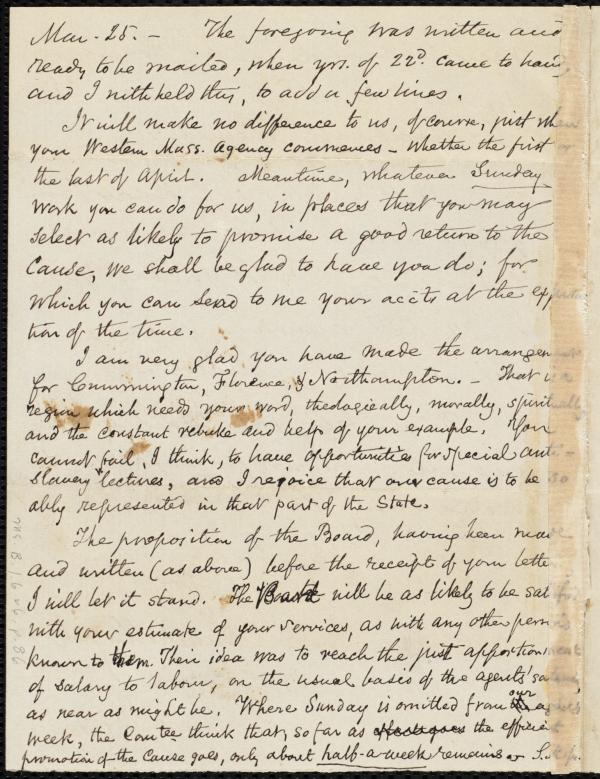 Mar. 25. - The foregoing was written and
ready to be mailed, when yrs. of 22d. came to hand,
and I withheld this, to add a few lines.
It will make no difference to us, of course, just when
your Western Mass. Agency commences - whether the first or
the last of April. Meantime, whatever Sunday
work you can do for us, in places that you may
select as likely to promise a good return to the
Cause, we shall be glad to have you do; for
which you can send to me your accts at the expira-
tion of the time.
I am very glad you have made the arrangement
for Cummington, Florence, & Northampton. - That is a
region which needs your word, theologically, morally, spiritually
and the constant rebuke and help of your example. You
cannot fail, I think, to have opportunities for special anti-
slavery lectures, and I rejoice that our cause is to be so
ably represented in that part of the State.
The proposition of the Board, having been made
and written (as above) before the receipt of your letter
I will let it stand. The Board will be as likely to be sat
with your estimate of your services, as with any other person
known to them. Their idea was to reach the just apportionment
of salary to labour, on the usual basis of the agents'
as near as might be. Where Sunday is omitted from our
week, the Comtee think that, so far as the efficient
promotion of the Cause goes, only about half-a-week remains.